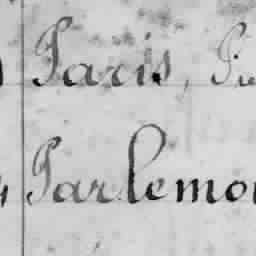 Paris,
Parlemo